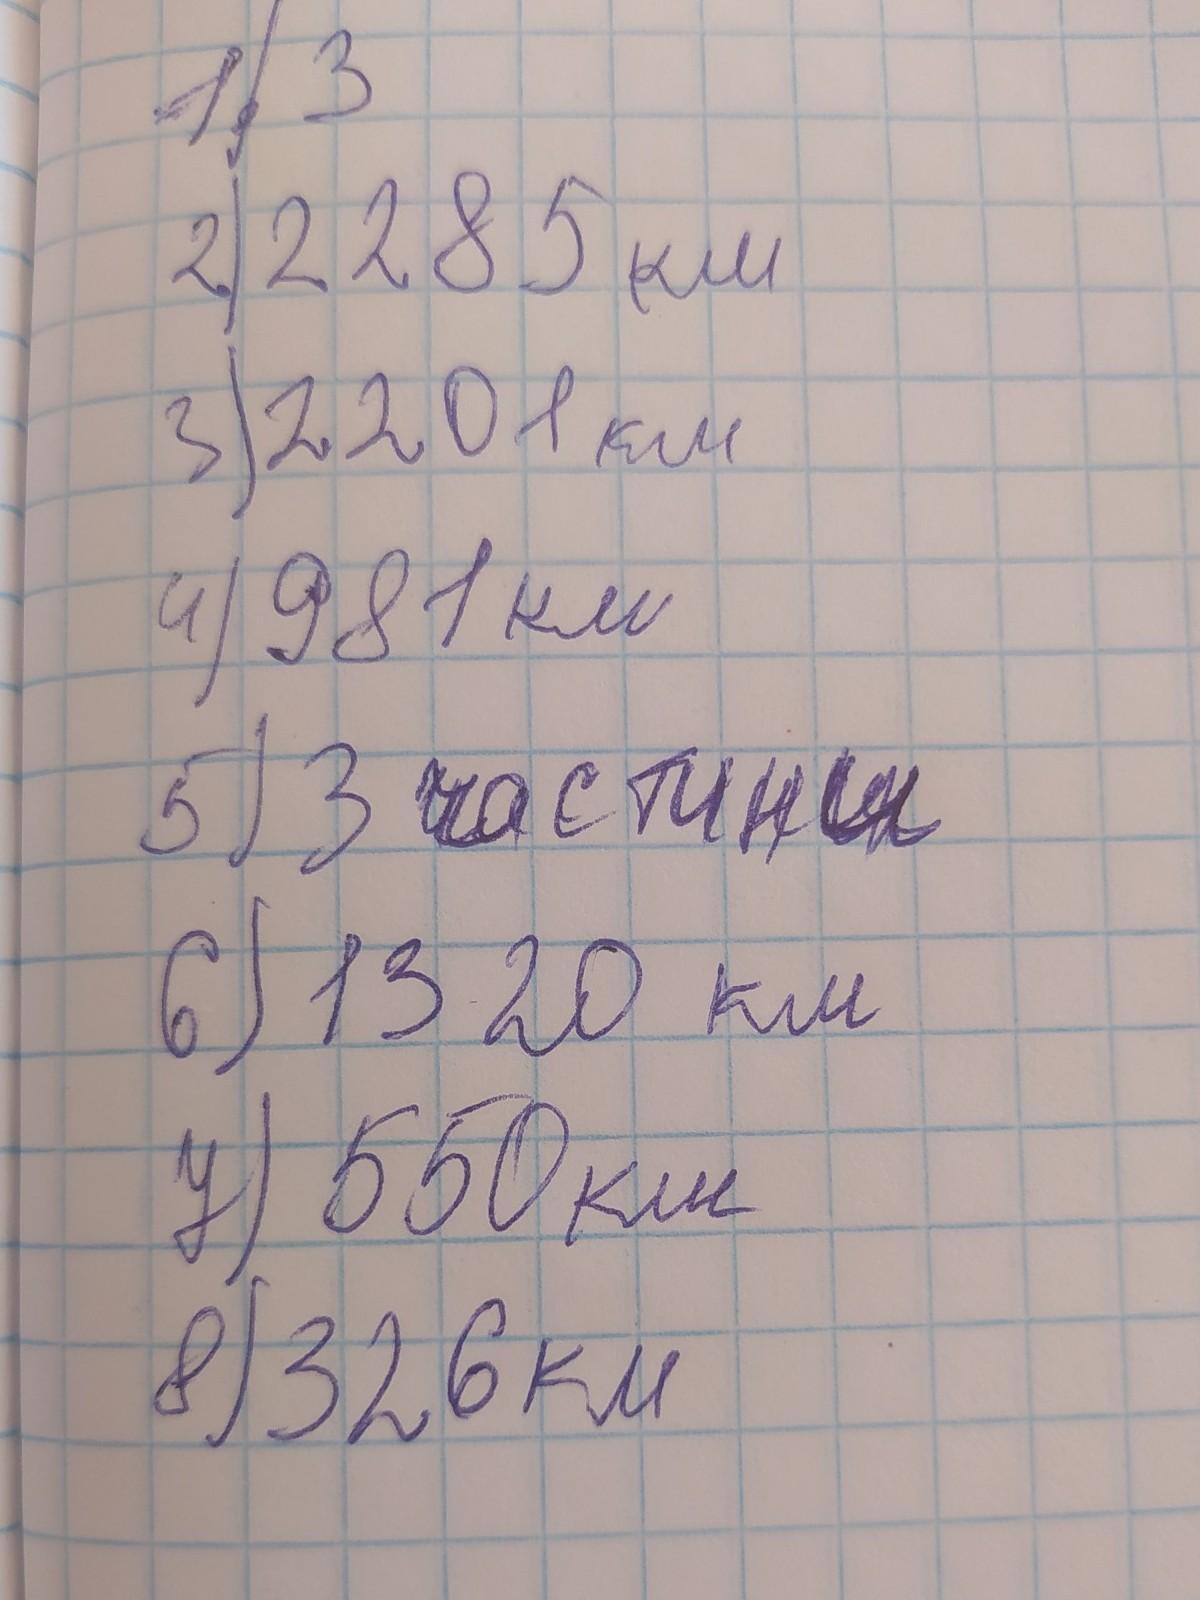 1) 3
2) 2285 км
3) 2201 км
4) 981 км
5) 3 частини
6) 1320 км
7) 550 км
8) 326 км